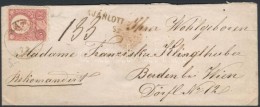 AJÁNLOTT
135
An Wohlgeboren
Madame Franziska Klingthuber
Recomandirt
Baden bei Wien
Dörfl No 12